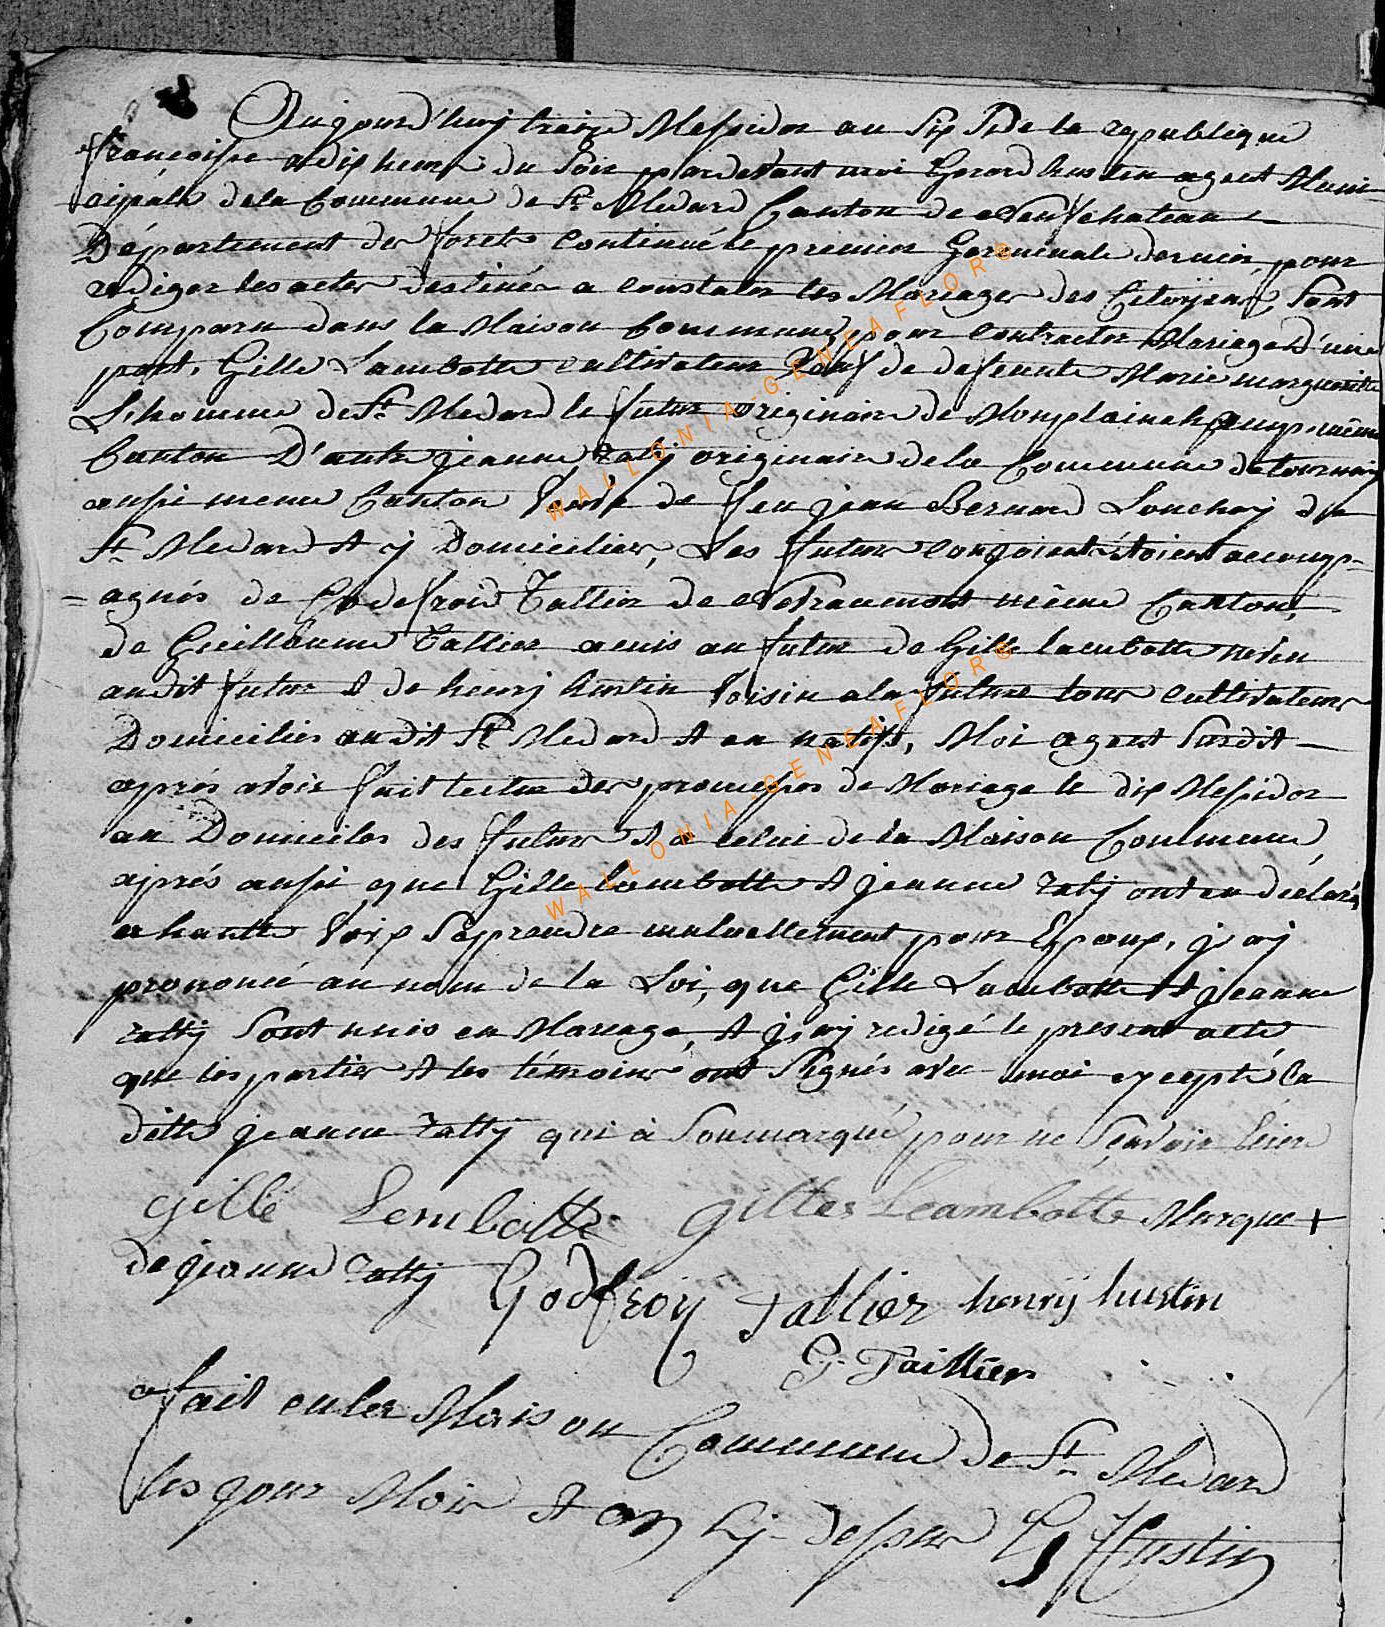 Aujourd'huy treize Messidor an Six de la republique
françoise a dix heure du Soir pardevant moi Gerard hustin agent Muni-
cipale dela Commune de St Medard Canton de Neufchateau
Département des forets continué le premier Germinale dernier, pour
rediger les actes destinés a constater les Mariages des Citoijens, Sont
Comparu dans la Maison Commune pour contracter Mariage D'une
part, Gille Lambotte cultivateur Veuf de defeunte Marie marguerite
Lihomme de St Medard le futur originaire de Monplainchamp même
Canton D'autre jeanne ratij originaire dela Commune de tournaij
aussi meme Canton Veuve de feu jean Bernard Louchay de
St Medard et ij Domiciliés, Les futur conjoient étoient accomp=
=agnés de Godefroid Tallier de Petraumont même Canton,
de Guillaume Tallier amis au futur de Gille lambotte neveu
audit futur et de henrij hustin Voisin a la future tous cultivateurs
Domiciliés audit St Medard et en natifs, Moi agent Susdit
aprés avoir fait lecture des promesses de Mariage le dix Messidor
au Domiciles des futur et a celui de la Maison Commune,
aprés aussi que Gille lambotte et jeanne ratij ont eu declarés
a haute Voix Se prendre mutuellement pour Epoux, j'aij
prononcé au nom de la Loi, que Gille Lambotte et jeanne
rattij Sont unis en Mariage, et j'aij redigé le present acte
que les parties et les témoins ont Signés avec moi excepté la
ditte jeanne rattij qui à Soumarqué pour ne Sçavoir écrire
gille Lembotte gilles Leambotte Marque +
de jeanne rattij Godfroy Tallier henrij hustin
G: Taillier
fait en la Maison Commune de St Medard
les jour Mois et an Cij-dessus G Hustin
WALLONIA-GENEAFLOR®
WALLONIA-GENEAFLOR®